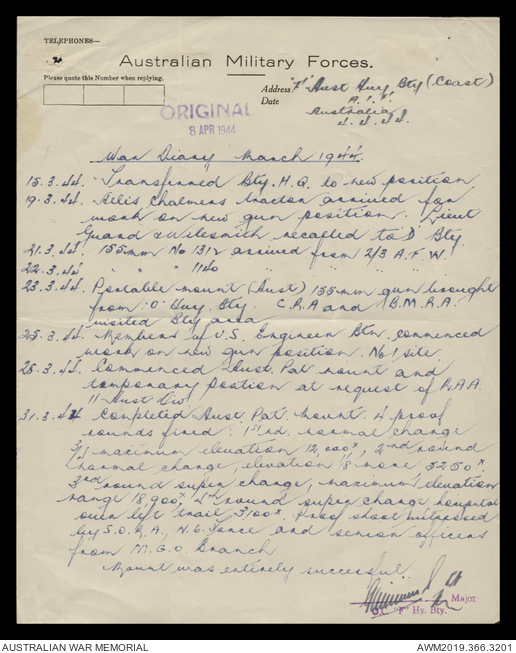 TELEPHONES—
Australian Military Forces.
Please quote this Number when replying.
Address "F" Aust Hvy Bty (Coast)
Date A.I.F.
Australia
ORIGINAL
8 APR 1944
War Diary March 1944.
15.3.44. Transferred Bty. H.Q. to new position
19.3.44. Allis Chalmers tractor arrived for
work on new gun position. Lieut
Guard & Wilesmith recalled to D Bty.
21.3.44. 155mm No 1312 arrived from 2/3 A.F.W.
22.3.44 " " " 1140
23.3.44. Portable mount (Aust) 155mm gun brought
from 'O' Hvy. Bty. C.R.A and B.M.R.A.
visited Bty area
25.3.44. Members of U.S. Engineer Btn. commenced
work on new gun position. No 1 site.
28.3.44. Commenced Aust. Pat mount and
temporary position at request of R.A.A.
11 Aust Div.
31.3.44 Completed Aust Pat. Mount. 4 proof
rounds fired: 1st rd. normal charge
3/4 maximum elevation 12,000x, 2nd round
normal charge, elevation 18 mins 3250x.
3rd round super charge, maximum elevation
range 18,900x, 4th round super charge horizontal
over left trail 3100x. Proof shoot witnessed
by S.O.R.A., N.G. Force and senior officers
from M.G.O Branch
Mount was entirely successful.
Major
O.C. "F" Hy. Bty.
AUSTRALIAN WAR MEMORIAL
AWM2019.366.3201